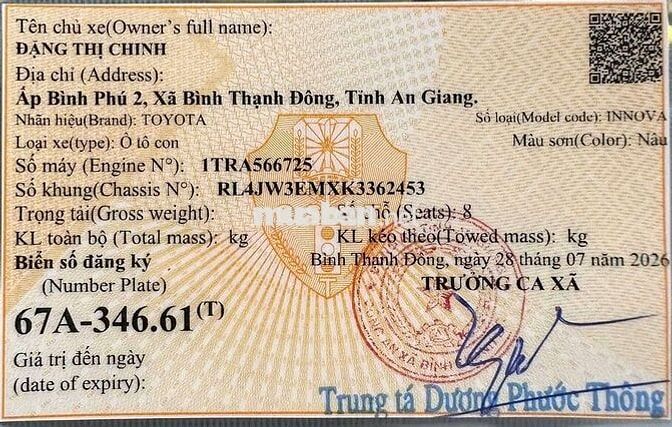 Tên chủ xe(Owner's full name):
ĐẶNG THỊ CHINH
Địa chỉ (Address):
Ấp Bình Phú 2, Xã Bình Thạnh Đông, Tỉnh An Giang.
Nhãn hiệu(Brand): TOYOTA Số loại(Model code): INNOVA
Loại xe(type): Ô tô con Màu sơn(Color): Nâu
Số máy (Engine N°): 1TRA566725
Số khung(Chassis N°): RL4JW3EMXK3362453
Trọng tải(Gross weight): Số chỗ (Seats): 8
muaban
KL toàn bộ (Total mass): kg KL kéo theo(Towed mass): kg
Biển số đăng ký Bình Thạnh Đông, ngày 28 tháng 07 năm 2026
(Number Plate) TRƯỞNG CA XÃ
67A-346.61(T)
Giá trị đến ngày
(date of expiry):
Trung tá Dương Phước Thông